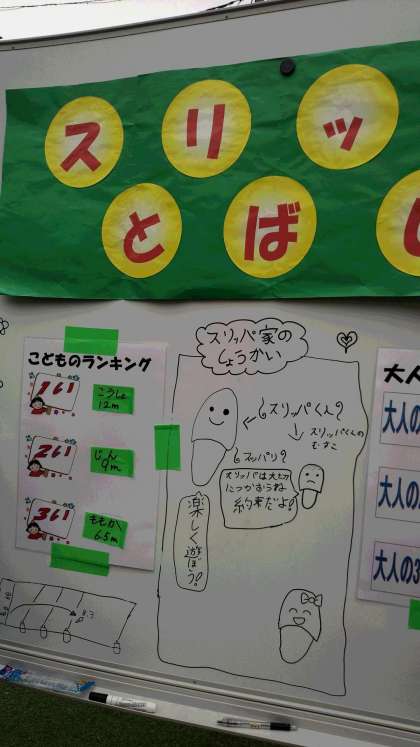 スリッ
とばし
こどものランキング
1い
こうしょ
12m
2い
じん
9m
3い
ももか
6.5m
スリッパ家の
しょうかい
スリッパくん?
スリッパくんの
むすこ
スッパリ?
スリッパは大切
につかおうね
約束だよ!
楽しく遊ぼう!
大人
大人の
大人の
大人の3